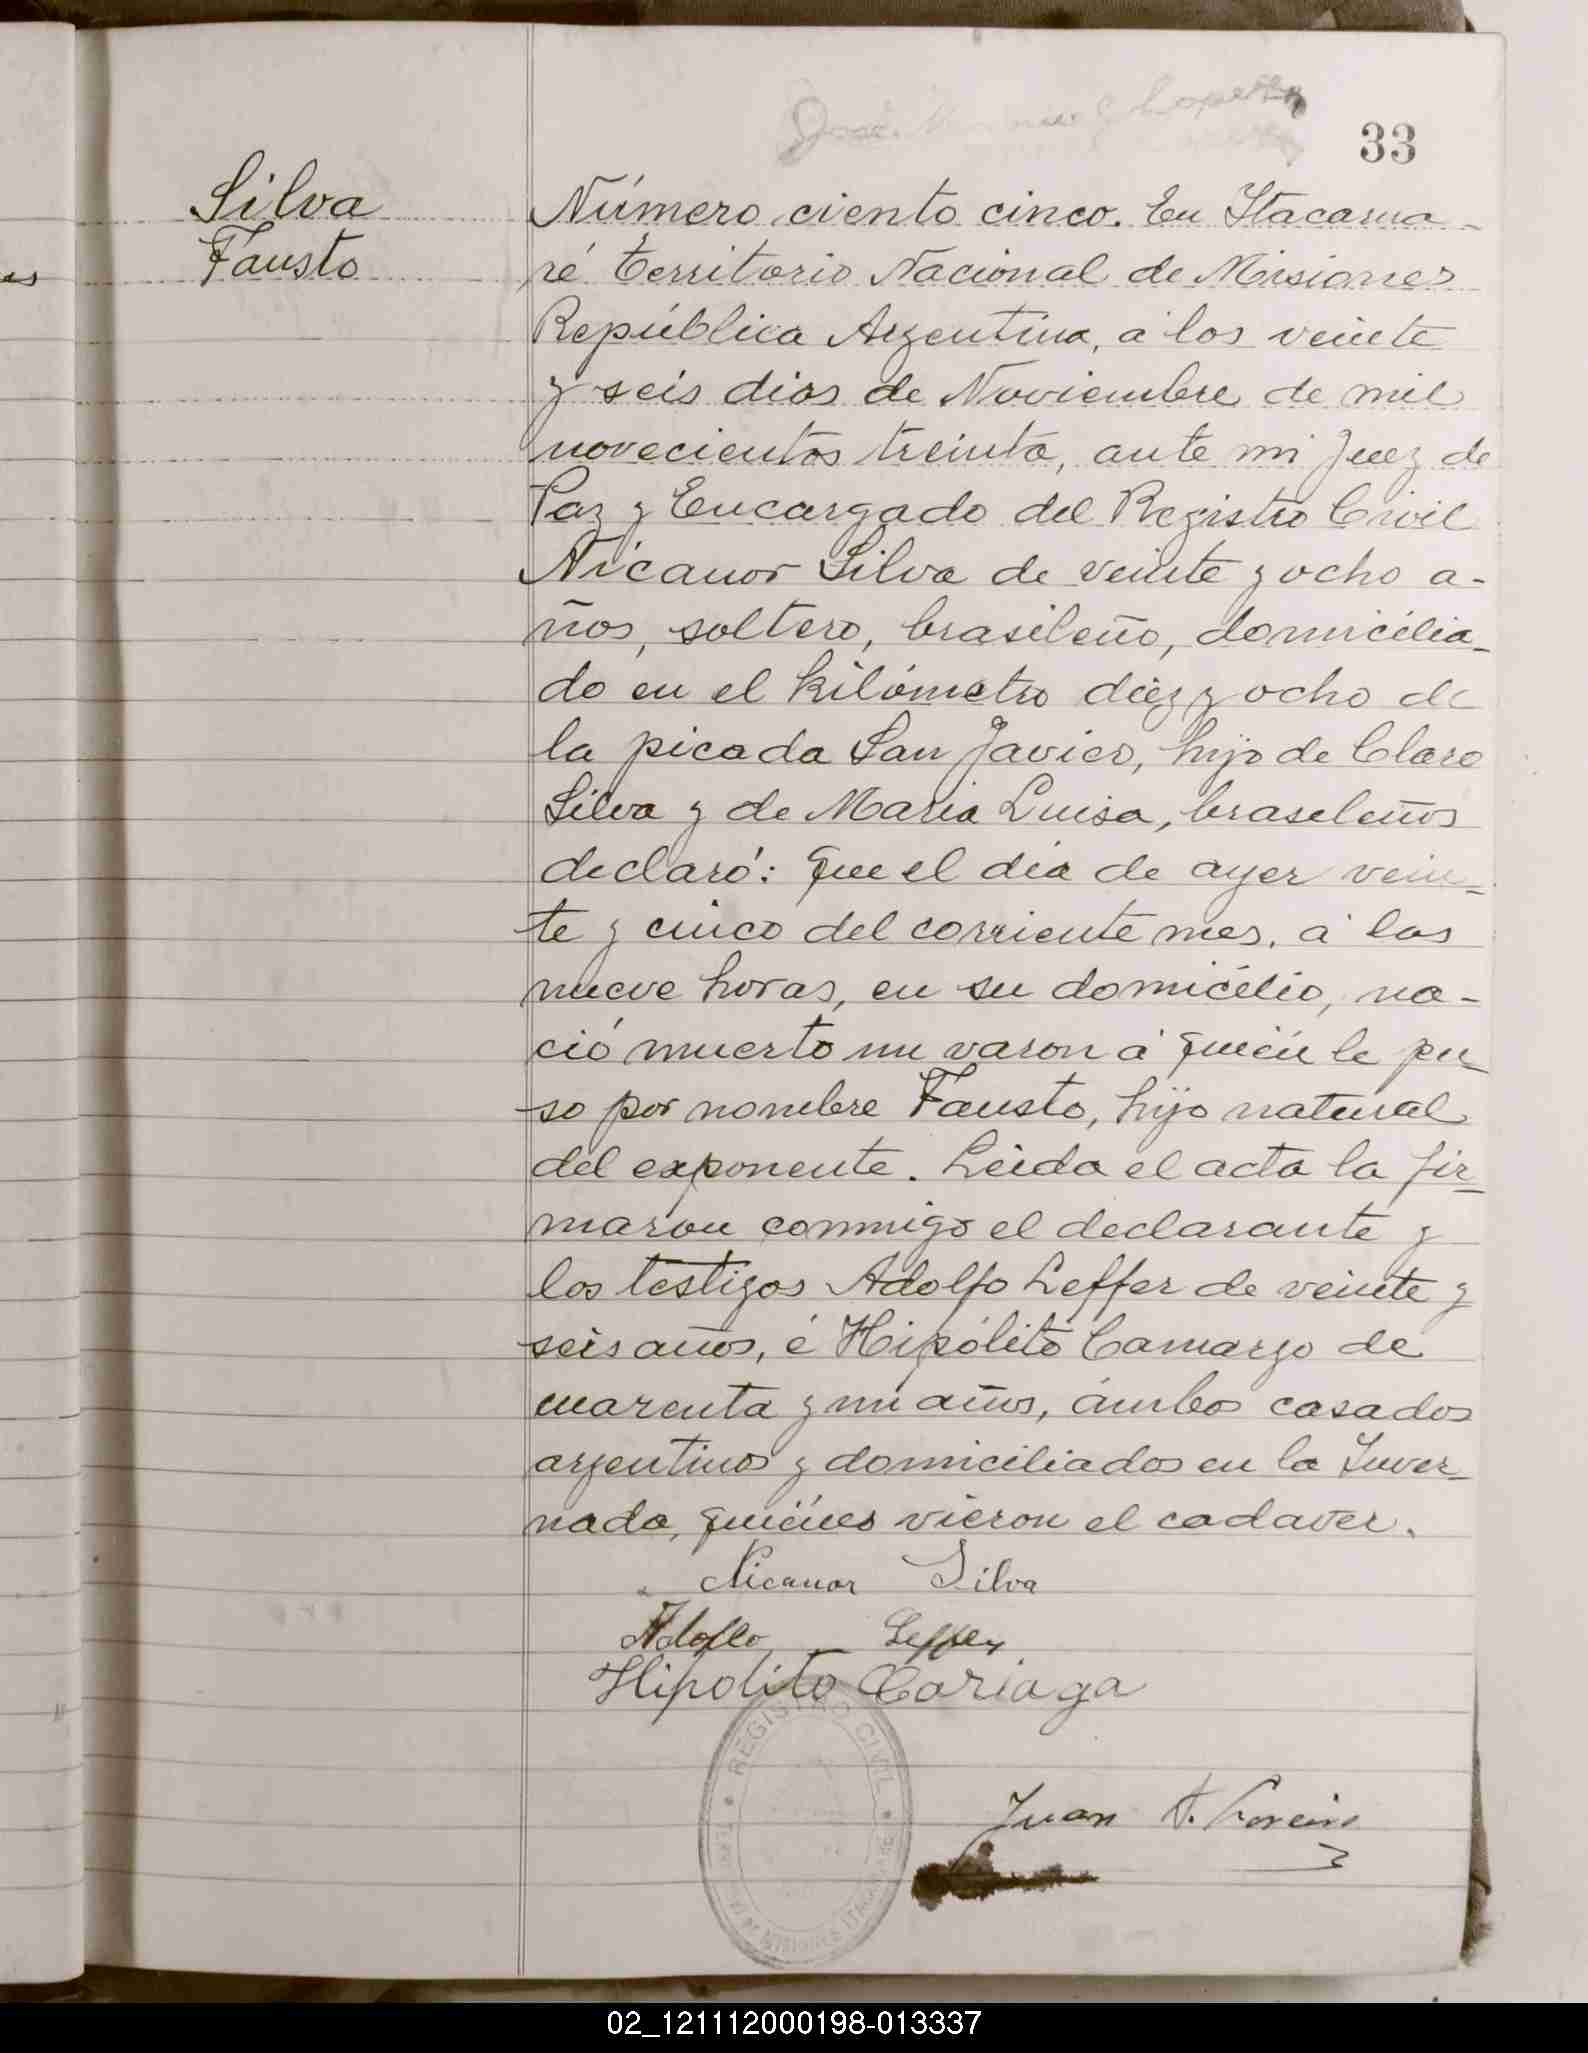 33
Silva
Fausto
Número ciento cinco. En Itacarua-
ré Territorio Nacional de Misiones
República Argentina, á los veinte
y seis dias de Noviembre de mil
novecientos treinta, ante mi Juez de
Paz y Encargado del Registro Civil
Nicanor Silva de veinte y ocho a-
ños, soltero, brasileño, domicilia-
do en el kilómetro diez y ocho de
la picada San Javier, hijo de Claro
Silva y de Maria Luisa, brasileños
declaró: que el dia de ayer vein=
te y cinco del corriente mes, á las
nueve horas, en su domicilio, na-
ció muerto un varon á quién le pu-
so por nombre Fausto, hijo natural
del exponente. Leida el acta la fir=
maron conmigo el declarante y
los testigos Adolfo Leffer de veinte y
seis años, é Hipólito Camargo de
cuarenta y un años, ámbos casados
argentinos y domiciliados en la Inver-
nada, quiénes vieron el cadaver.
Nicanor Silva
Adolfo Leffer
Hipolito Cariaga
REGISTRO CIVIL
MISIONES
Juan A.
02_121112000198-013337